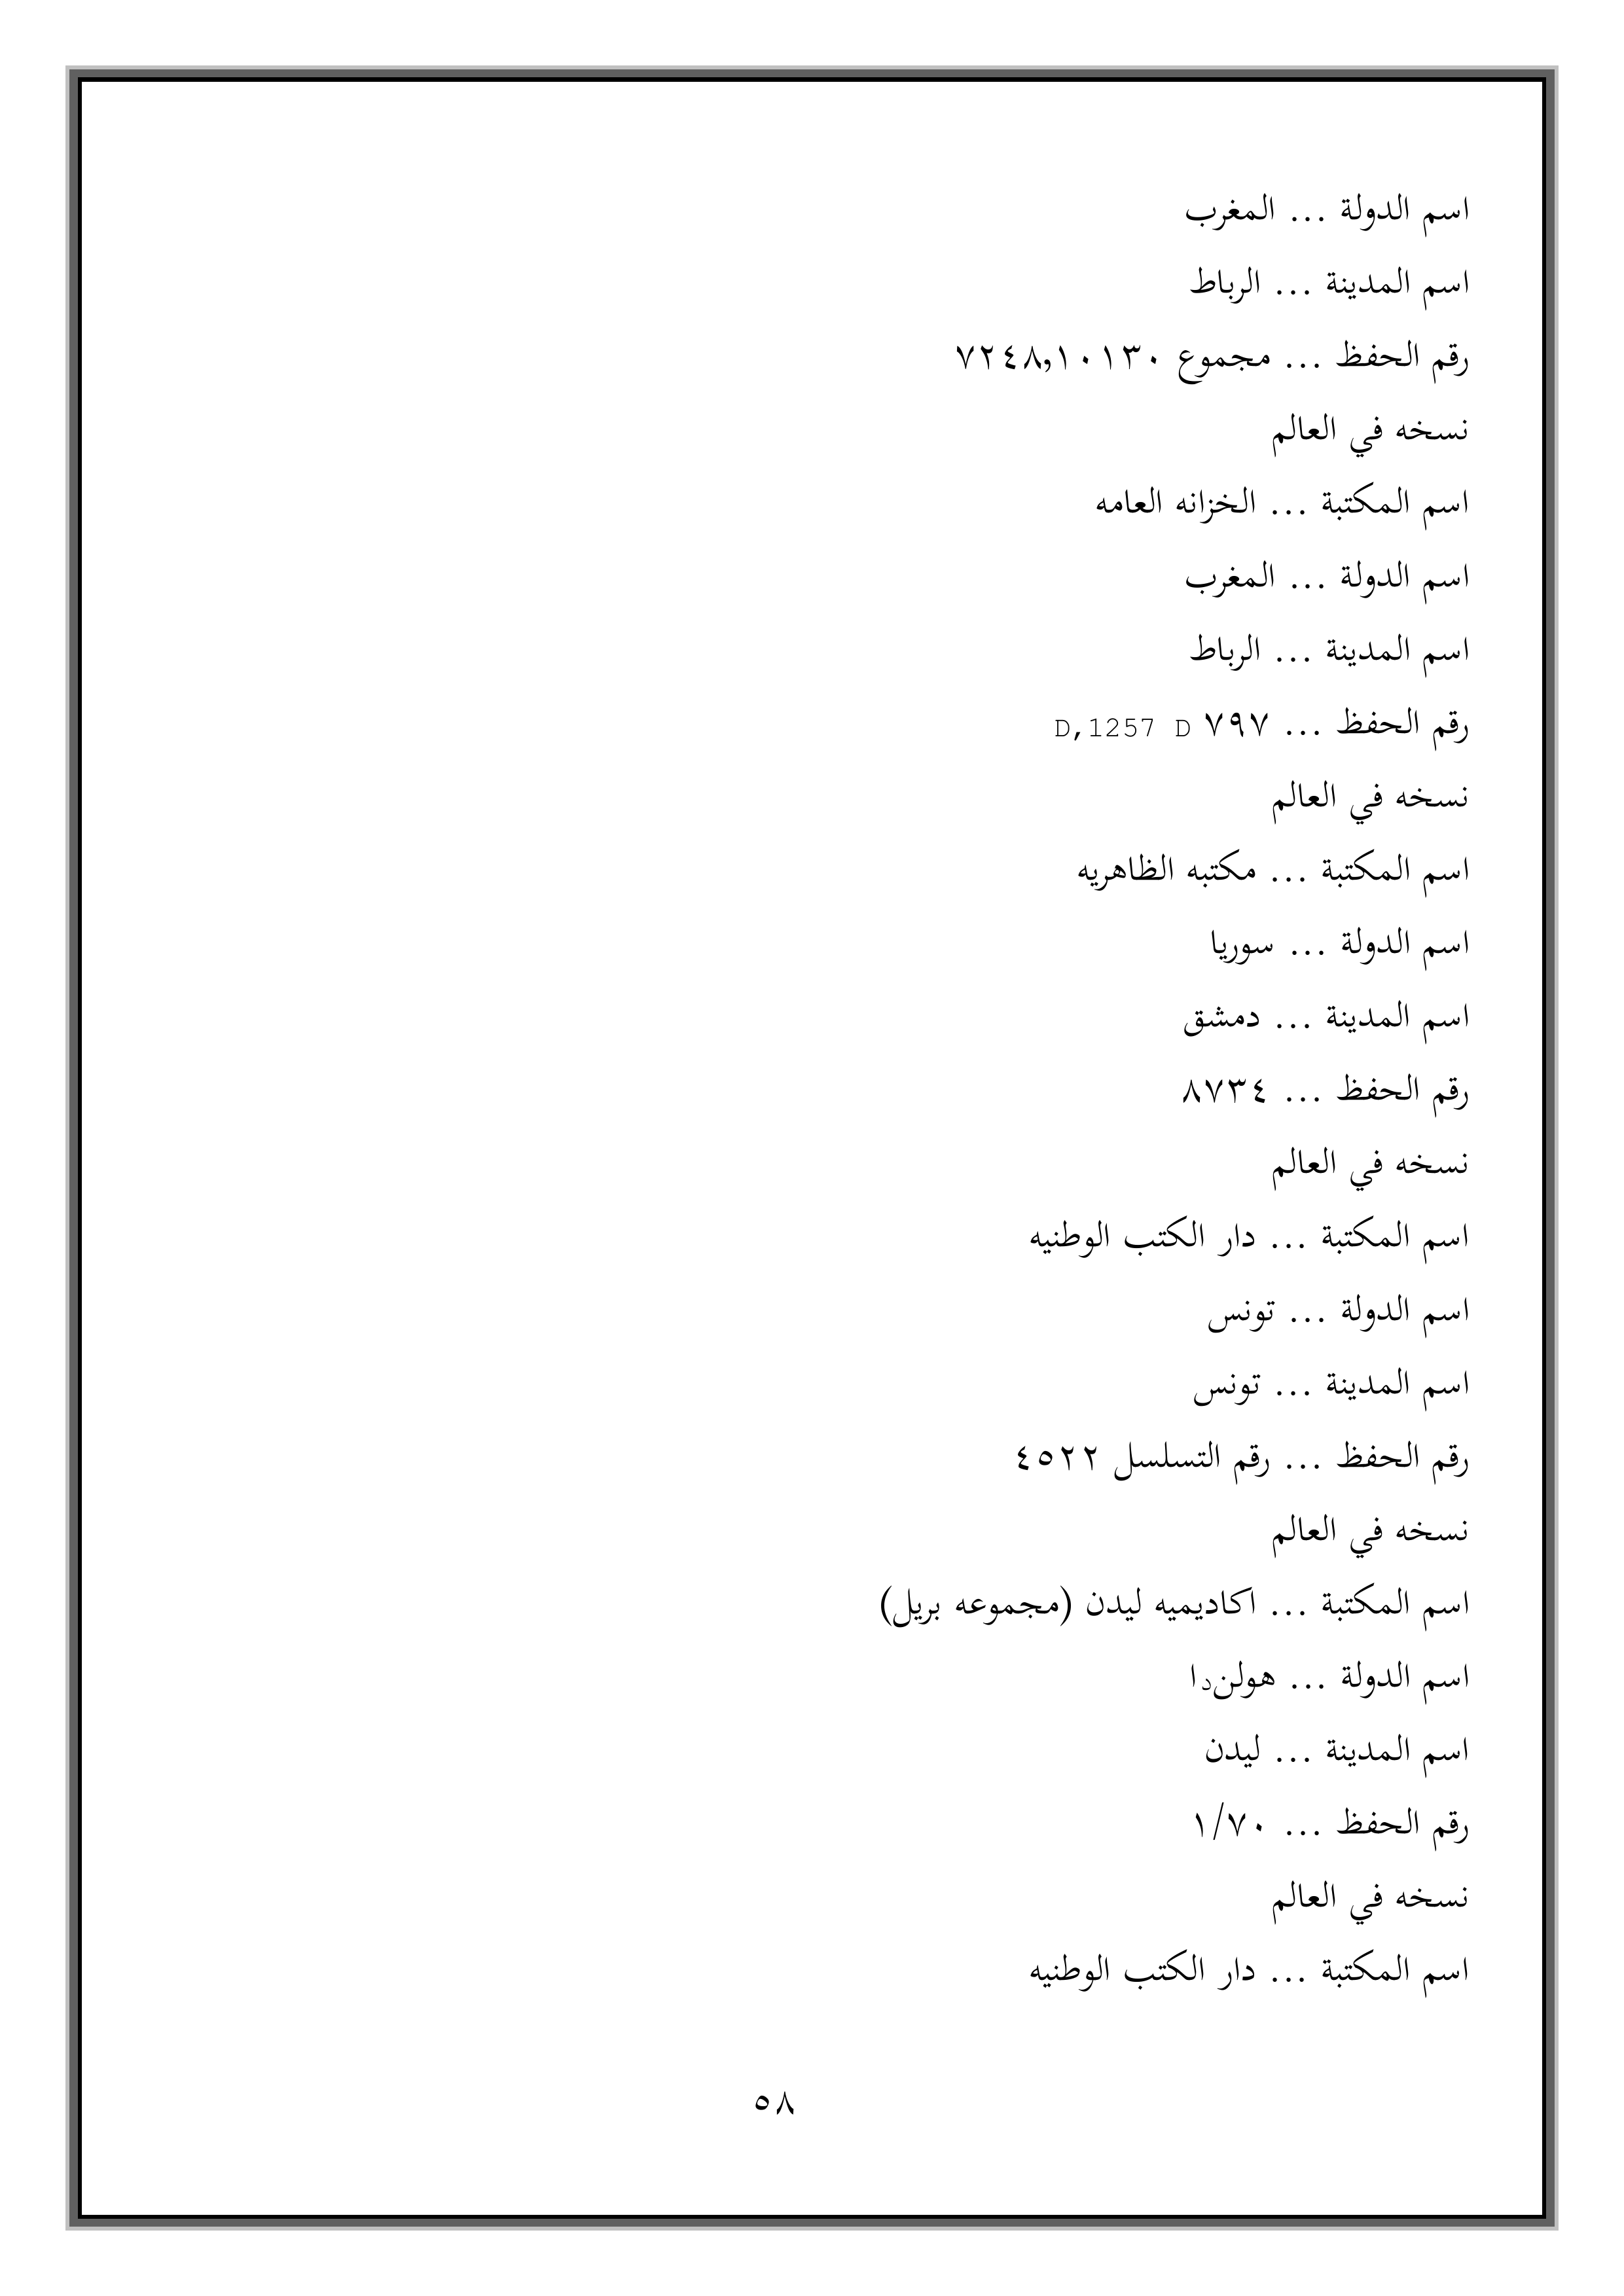 اسم الدولة ... المغرب
اسم المدينة ... الرباط
رقم الحفظ ... مجموع ٧٢٤٨,١٠١٣٠
نسخه في العالم
اسم المكتبة ... الخزانه العامه
اسم الدولة ... المغرب
اسم المدينة ... الرباط
رقم الحفظ ... ٧٩٧ D,1257 D
نسخه في العالم
اسم المكتبة ... مكتبه الظاهريه
اسم الدولة ... سوريا
اسم المدينة ... دمشق
رقم الحفظ ... ٨٧٣٤
نسخه في العالم
اسم المكتبة ... دار الكتب الوطنيه
اسم الدولة ... تونس
اسم المدينة ... تونس
رقم الحفظ ... رقم التسلسل ٤٥٢٢
نسخه في العالم
اسم المكتبة ... اكاديميه ليدن (مجموعه بريل)
اسم الدولة ... هولندا
اسم المدينة ... ليدن
رقم الحفظ ... ١/٧٠
نسخه في العالم
اسم المكتبة ... دار الكتب الوطنيه
٥٨